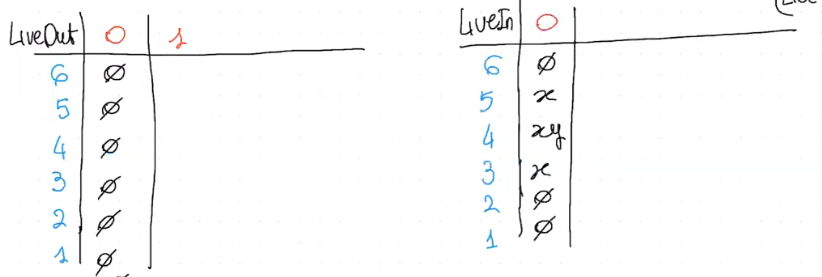 LiveOut 0 1
6 ∅
5 ∅
4 ∅
3 ∅
2 ∅
1 ∅
LiveIn 0
6 ∅
5 x
4 xy
3 x
2 ∅
1 ∅